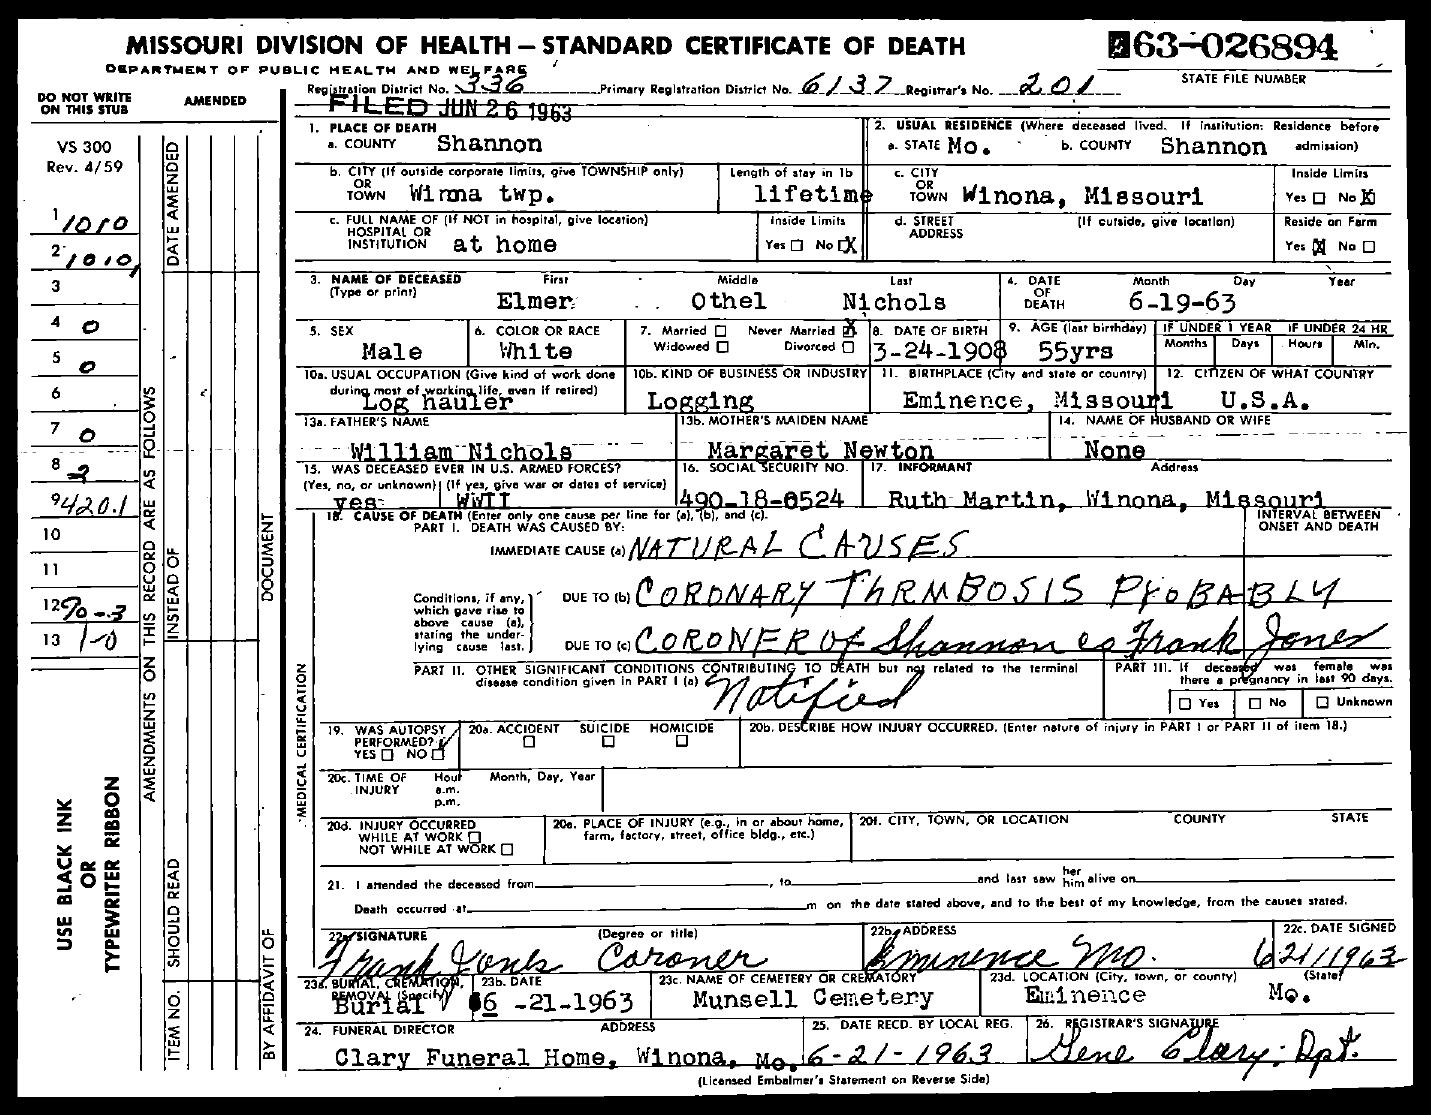 MISSOURI DIVISION OF HEALTH — STANDARD CERTIFICATE OF DEATH
63-026894
DEPARTMENT OF PUBLIC HEALTH AND WELFARE
STATE FILE NUMBER
Registration District No. 336 Primary Registration District No. 6137 Registrar's No. 201
FILED JUN 26 1963
DO NOT WRITE ON THIS STUB
AMENDED
VS 300
Rev. 4/59
1 1010
2 1010
3
4 0
5 0
6
7 0
8 2
9 4201
10
11
12 90-3
13 1-0
USE BLACK INK
OR
TYPEWRITER RIBBON
AMENDMENTS ON THIS RECORD ARE AS FOLLOWS
DATE AMENDED
INSTEAD OF
SHOULD READ
ITEM NO.
DOCUMENT
BY AFFIDAVIT OF
MEDICAL CERTIFICATION
1. PLACE OF DEATH
a. COUNTY Shannon
2. USUAL RESIDENCE (Where deceased lived. If institution: Residence before admission)
a. STATE Mo. b. COUNTY Shannon
b. CITY (If outside corporate limits, give TOWNSHIP only)
OR
TOWN Winona twp.
Length of stay in 1b
lifetime
c. CITY
OR
TOWN Winona, Missouri
Inside Limits
Yes No X
c. FULL NAME OF (If NOT in hospital, give location)
HOSPITAL OR
INSTITUTION at home
Inside Limits
Yes No X
d. STREET ADDRESS (If outside, give location)
Reside on Farm
Yes X No
3. NAME OF DECEASED
(Type or print)
First Middle Last
Elmer Othel Nichols
4. DATE OF DEATH Month Day Year
6-19-63
5. SEX
Male
6. COLOR OR RACE
White
7. Married Never Married X
Widowed Divorced
8. DATE OF BIRTH
3-24-1908
9. AGE (last birthday)
55yrs
IF UNDER 1 YEAR IF UNDER 24 HR
Months Days Hours Min.
10a. USUAL OCCUPATION (Give kind of work done during most of working life, even if retired)
Log hauler
10b. KIND OF BUSINESS OR INDUSTRY
Logging
11. BIRTHPLACE (City and state or country)
Eminence, Missouri
12. CITIZEN OF WHAT COUNTRY
U.S.A.
13a. FATHER'S NAME
William Nichols
13b. MOTHER'S MAIDEN NAME
Margaret Newton
14. NAME OF HUSBAND OR WIFE
None
15. WAS DECEASED EVER IN U.S. ARMED FORCES?
(Yes, no, or unknown) (If yes, give war or dates of service)
yes WWII
16. SOCIAL SECURITY NO.
490-18-0524
17. INFORMANT Address
Ruth Martin, Winona, Missouri
18. CAUSE OF DEATH (Enter only one cause per line for (a), (b), and (c).
PART I. DEATH WAS CAUSED BY:
INTERVAL BETWEEN ONSET AND DEATH
IMMEDIATE CAUSE (a) NATURAL CAUSES
Conditions, if any, which gave rise to above cause (a), stating the underlying cause last.
DUE TO (b) CORONARY THRMBOSIS PROBABLY
DUE TO (c) CORONER OF Shannon co Frank Jones
PART II. OTHER SIGNIFICANT CONDITIONS CONTRIBUTING TO DEATH but not related to the terminal disease condition given in PART I (a)
Notified
PART III. If deceased was female was there a pregnancy in last 90 days.
Yes No Unknown
19. WAS AUTOPSY PERFORMED?
YES NO ✓
20a. ACCIDENT SUICIDE HOMICIDE
20b. DESCRIBE HOW INJURY OCCURRED. (Enter nature of injury in PART I or PART II of item 18.)
20c. TIME OF INJURY Hour Month, Day, Year
a.m.
p.m.
20d. INJURY OCCURRED
WHILE AT WORK
NOT WHILE AT WORK
20e. PLACE OF INJURY (e.g., in or about home, farm, factory, street, office bldg., etc.)
20f. CITY, TOWN, OR LOCATION COUNTY STATE
21. I attended the deceased from , to and last saw her him alive on
Death occurred at m on the date stated above, and to the best of my knowledge, from the causes stated.
22a. SIGNATURE (Degree or title)
Frank Jones Coroner
22b. ADDRESS
Eminence Mo.
22c. DATE SIGNED
6 21/1963
23a. BURIAL, CREMATION, REMOVAL (Specify)
Burial
23b. DATE
6 -21-1963
23c. NAME OF CEMETERY OR CREMATORY
Munsell Cemetery
23d. LOCATION (City, town, or county) (State)
Eminence Mo.
24. FUNERAL DIRECTOR ADDRESS
Clary Funeral Home, Winona, Mo.
25. DATE RECD. BY LOCAL REG.
6-21-1963
26. REGISTRAR'S SIGNATURE
Gene Clary, Dpt.
(Licensed Embalmer's Statement on Reverse Side)